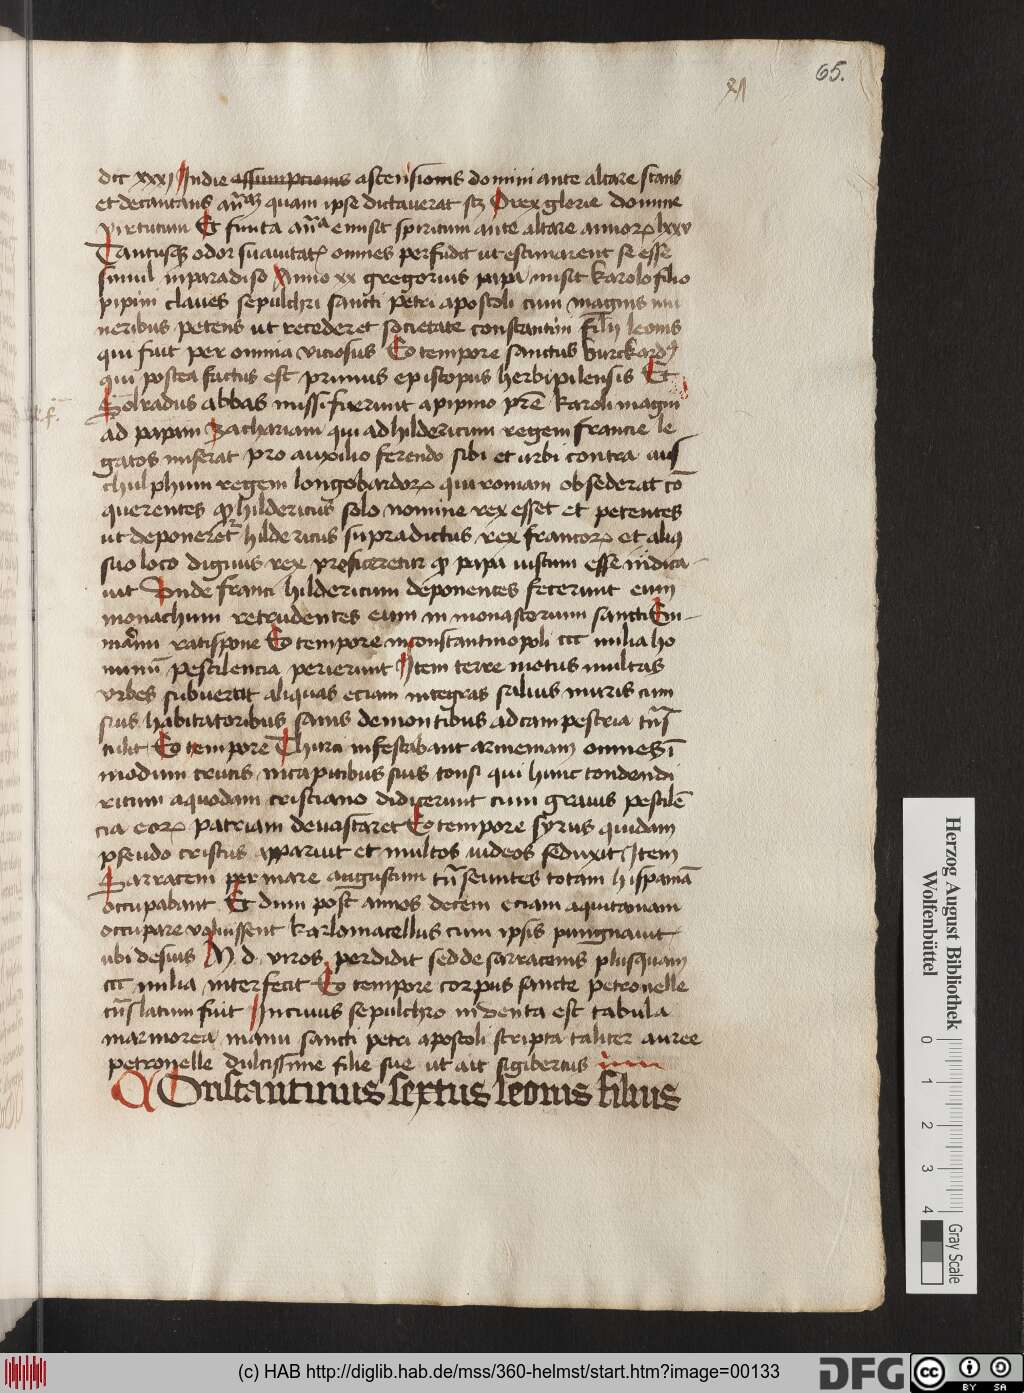 65.
dcc xxxj In die assumptionis ascensionis domini ante altare stans
et decantans an̄aȝ quam ipse dictaverat scȝ O rex glorie domine
virtutum Et finita an̄a emisit spiritum ante altare annorꝝ lxxv
Tantusqȝ odor suavitatꝭ omnes perfudit ut estimarent se esse
simul in paradiso Anno xx gregorius papa misit karolo filio
pipini claves sepulchri sancti petri apostoli cum magnis mu
neribus petens ut recederet societate constantini filij leonis
qui fuit per omnia viciosus Eo tempore sanctus burckardꝰ
qui postea factus est primus episcopus herbipilensis Et
Solradus abbas missi fuerunt a pipino pr̄e karoli magni
ad papam Zachariam qui ad hildericum regem francie le
gatos miserat pro auxilio ferendo sibi et urbi contra aus
chulphum regem longobardorꝝ qui romam obsederat cō
querentes ꝙ hildericus solo nomine rex esset et petentes
ut deponeretr hildericus supradictus rex francorꝝ et aliꝰ
suo loco dignus rex preficeretur ꝙ papa iustum esse iudica
uit Unde franci hildericum deponentes fecerunt eum
monachum retrudentes eum in monasterium sancti Em
mārni ratispone Eo tempore in constantinopoli ccc milia ho
minū pestilencia perierunt Item terre motus multas
urbes subvertit aliquas eciam integras salvis muris cum
suis habitatoribus sanis de montibus ad campestria tn̄s
tulit Eo tempore Thurci infestabant armeniam omnes ī
modum crucis in capitibus suis tonsi qui hunc tondendi
ritum a quodam cristiano didicerunt cum gravis pestilē
cia eorꝝ patriam devastaret Eo tempore syrus quidam
pseudo cristus apparuit et multos iudeos seduxit Item
Sarraceni per mare angustum tn̄seuntes totam hispaniā
occupabant Et dum post annos decem eciam aquitaniam
occupare voluissent karlomacellus cum ipsis pungnavit
ubi de suis M d viros perdidit sed de sarracenis plusquam
ccc milia interfecit Eo tempore corpus sancte petronelle
tn̄slatum fuit In cuius sepulchro inventa est tabula
marmorea manu sancti petri apostoli scripta taliter auree
petronelle dulcissime filie sue ut ait sigibertus
Constantinus sextus leonis filius
Herzog August Bibliothek
Wolfenbüttel
0 1 2 3 4
Gray Scale
(c) HAB http://diglib.hab.de/mss/360-helmst/start.htm?image=00133
DFG
cc BY SA